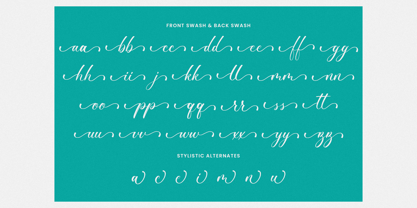 FRONT SWASH & BACK SWASH
aa bb cc dd ee ff gg
hh ii j kk ll mm nn
oo pp qq rr ss tt
uu vv ww xx yy zz
STYLISTIC ALTERNATES
a e c i m n u